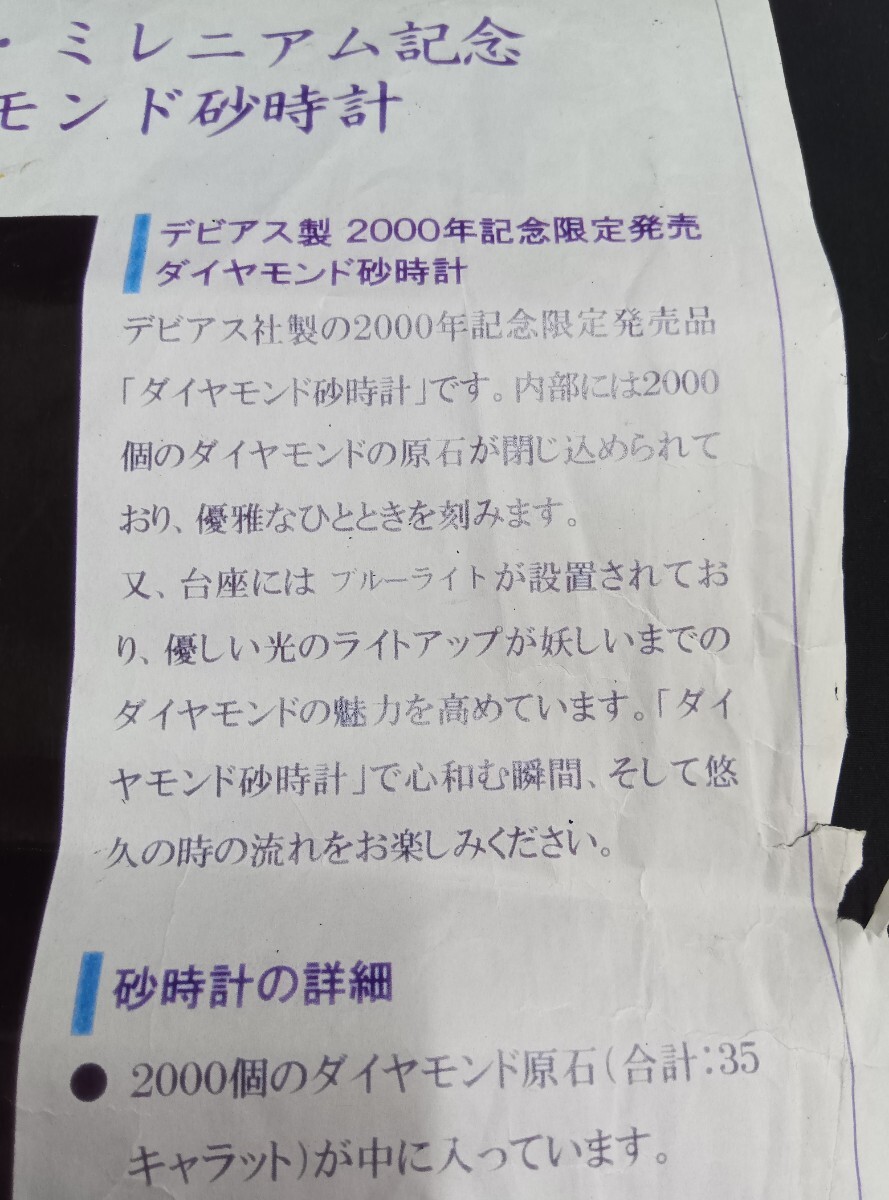 ・ミレニアム記念
モンド砂時計
デビアス製 2000年記念限定発売
ダイヤモンド砂時計
デビアス社製の2000年記念限定発売品
「ダイヤモンド砂時計」です。内部には2000
個のダイヤモンドの原石が閉じ込められて
おり、優雅なひとときを刻みます。
又、台座には ブルーライトが設置されてお
り、優しい光のライトアップが妖しいまでの
ダイヤモンドの魅力を高めています。「ダイ
ヤモンド砂時計」で心和む瞬間、そして悠
久の時の流れをお楽しみください。
砂時計の詳細
● 2000個のダイヤモンド原石(合計:35
キャラット)が中に入っています。